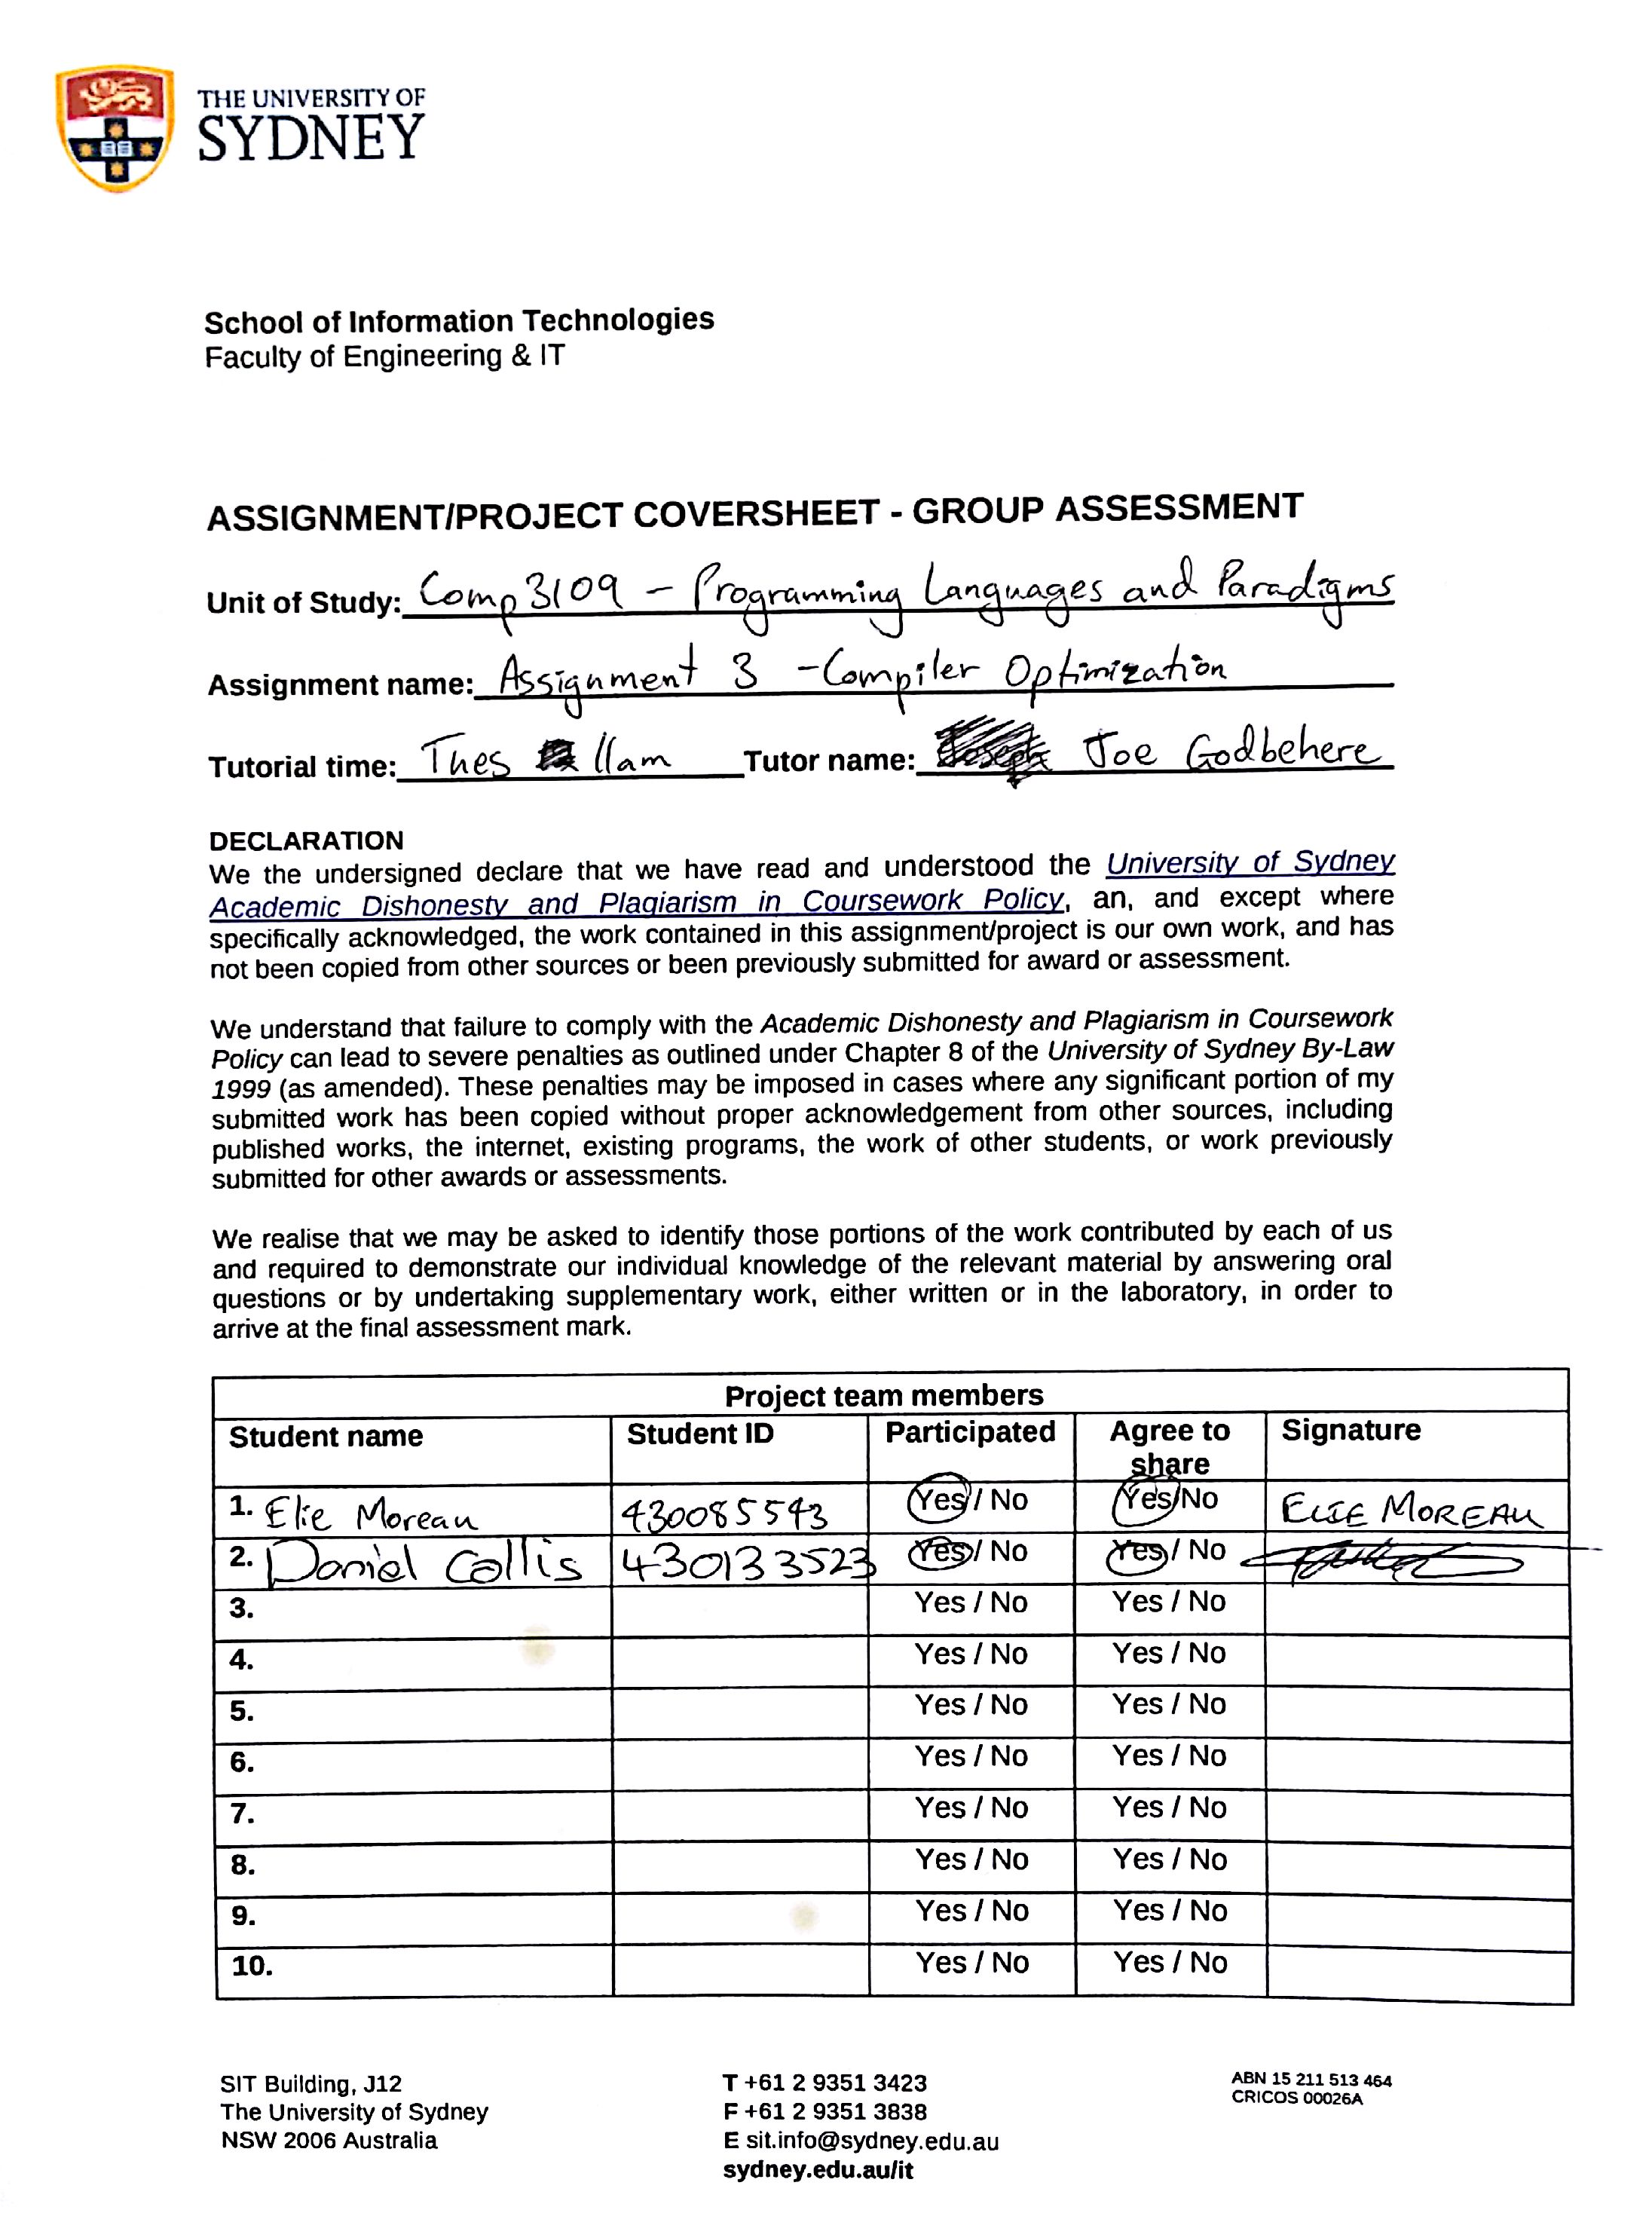 THE UNIVERSITY OF
SYDNEY
School of Information Technologies
Faculty of Engineering & IT
ASSIGNMENT/PROJECT COVERSHEET - GROUP ASSESSMENT
Unit of Study: Comp3109 - Programming Languages and Paradigms
Assignment name: Assignment 3 - Compiler Optimization
Tutorial time: Tues 11am Tutor name: Joe Godbehere
DECLARATION
We the undersigned declare that we have read and understood the University of Sydney
Academic Dishonesty and Plagiarism in Coursework Policy, an, and except where
specifically acknowledged, the work contained in this assignment/project is our own work, and has
not been copied from other sources or been previously submitted for award or assessment.
We understand that failure to comply with the Academic Dishonesty and Plagiarism in Coursework
Policy can lead to severe penalties as outlined under Chapter 8 of the University of Sydney By-Law
1999 (as amended). These penalties may be imposed in cases where any significant portion of my
submitted work has been copied without proper acknowledgement from other sources, including
published works, the internet, existing programs, the work of other students, or work previously
submitted for other awards or assessments.
We realise that we may be asked to identify those portions of the work contributed by each of us
and required to demonstrate our individual knowledge of the relevant material by answering oral
questions or by undertaking supplementary work, either written or in the laboratory, in order to
arrive at the final assessment mark.
Project team members
Student name Student ID Participated Agree to share Signature
1. Elie Moreau 430085543 Yes / No Yes/No ELIE MOREAU
2. Daniel Collis 430133523 Yes / No Yes / No
3. Yes / No Yes / No
4. Yes / No Yes / No
5. Yes / No Yes / No
6. Yes / No Yes / No
7. Yes / No Yes / No
8. Yes / No Yes / No
9. Yes / No Yes / No
10. Yes / No Yes / No
SIT Building, J12
The University of Sydney
NSW 2006 Australia
T +61 2 9351 3423
F +61 2 9351 3838
E sit.info@sydney.edu.au
sydney.edu.au/it
ABN 15 211 513 464
CRICOS 00026A